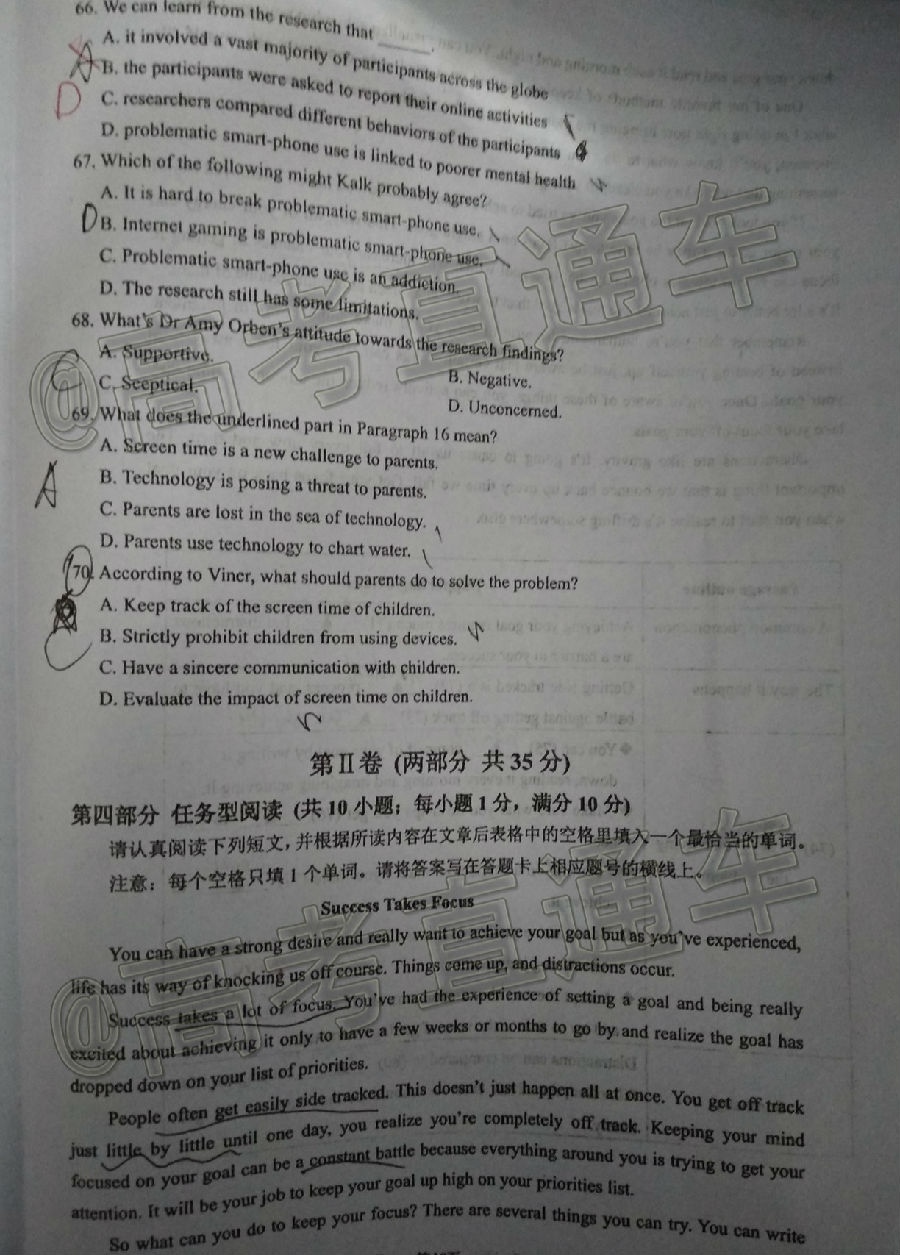 66. We can learn from the research that ______.
A. it involved a vast majority of participants across the globe
B. the participants were asked to report their online activities
C. researchers compared different behaviors of the participants
D. problematic smart-phone use is linked to poorer mental health
67. Which of the following might Kalk probably agree?
A. It is hard to break problematic smart-phone use.
B. Internet gaming is problematic smart-phone use.
C. Problematic smart-phone use is an addiction.
D. The research still has some limitations.
68. What's Dr Amy Orben's attitude towards the research findings?
A. Supportive.
B. Negative.
C. Sceptical.
D. Unconcerned.
69. What does the underlined part in Paragraph 16 mean?
A. Screen time is a new challenge to parents.
B. Technology is posing a threat to parents.
C. Parents are lost in the sea of technology.
D. Parents use technology to chart water.
70. According to Viner, what should parents do to solve the problem?
A. Keep track of the screen time of children.
B. Strictly prohibit children from using devices.
C. Have a sincere communication with children.
D. Evaluate the impact of screen time on children.
A
D
D
C
A
C
第Ⅱ卷 (两部分 共 35 分)
第四部分 任务型阅读 (共 10 小题；每小题 1 分，满分 10 分)
请认真阅读下列短文，并根据所读内容在文章后表格中的空格里填入一个最恰当的单词。
注意：每个空格只填 1 个单词。请将答案写在答题卡上相应题号的横线上。
Success Takes Focus
You can have a strong desire and really want to achieve your goal but as you've experienced,
life has its way of knocking us off course. Things come up, and distractions occur.
Success takes a lot of focus. You've had the experience of setting a goal and being really
excited about achieving it only to have a few weeks or months to go by and realize the goal has
dropped down on your list of priorities.
People often get easily side tracked. This doesn't just happen all at once. You get off track
just little by little until one day, you realize you're completely off track. Keeping your mind
focused on your goal can be a constant battle because everything around you is trying to get your
attention. It will be your job to keep your goal up high on your priorities list.
So what can you do to keep your focus? There are several things you can try. You can write
@高考直通车
@高考直通车